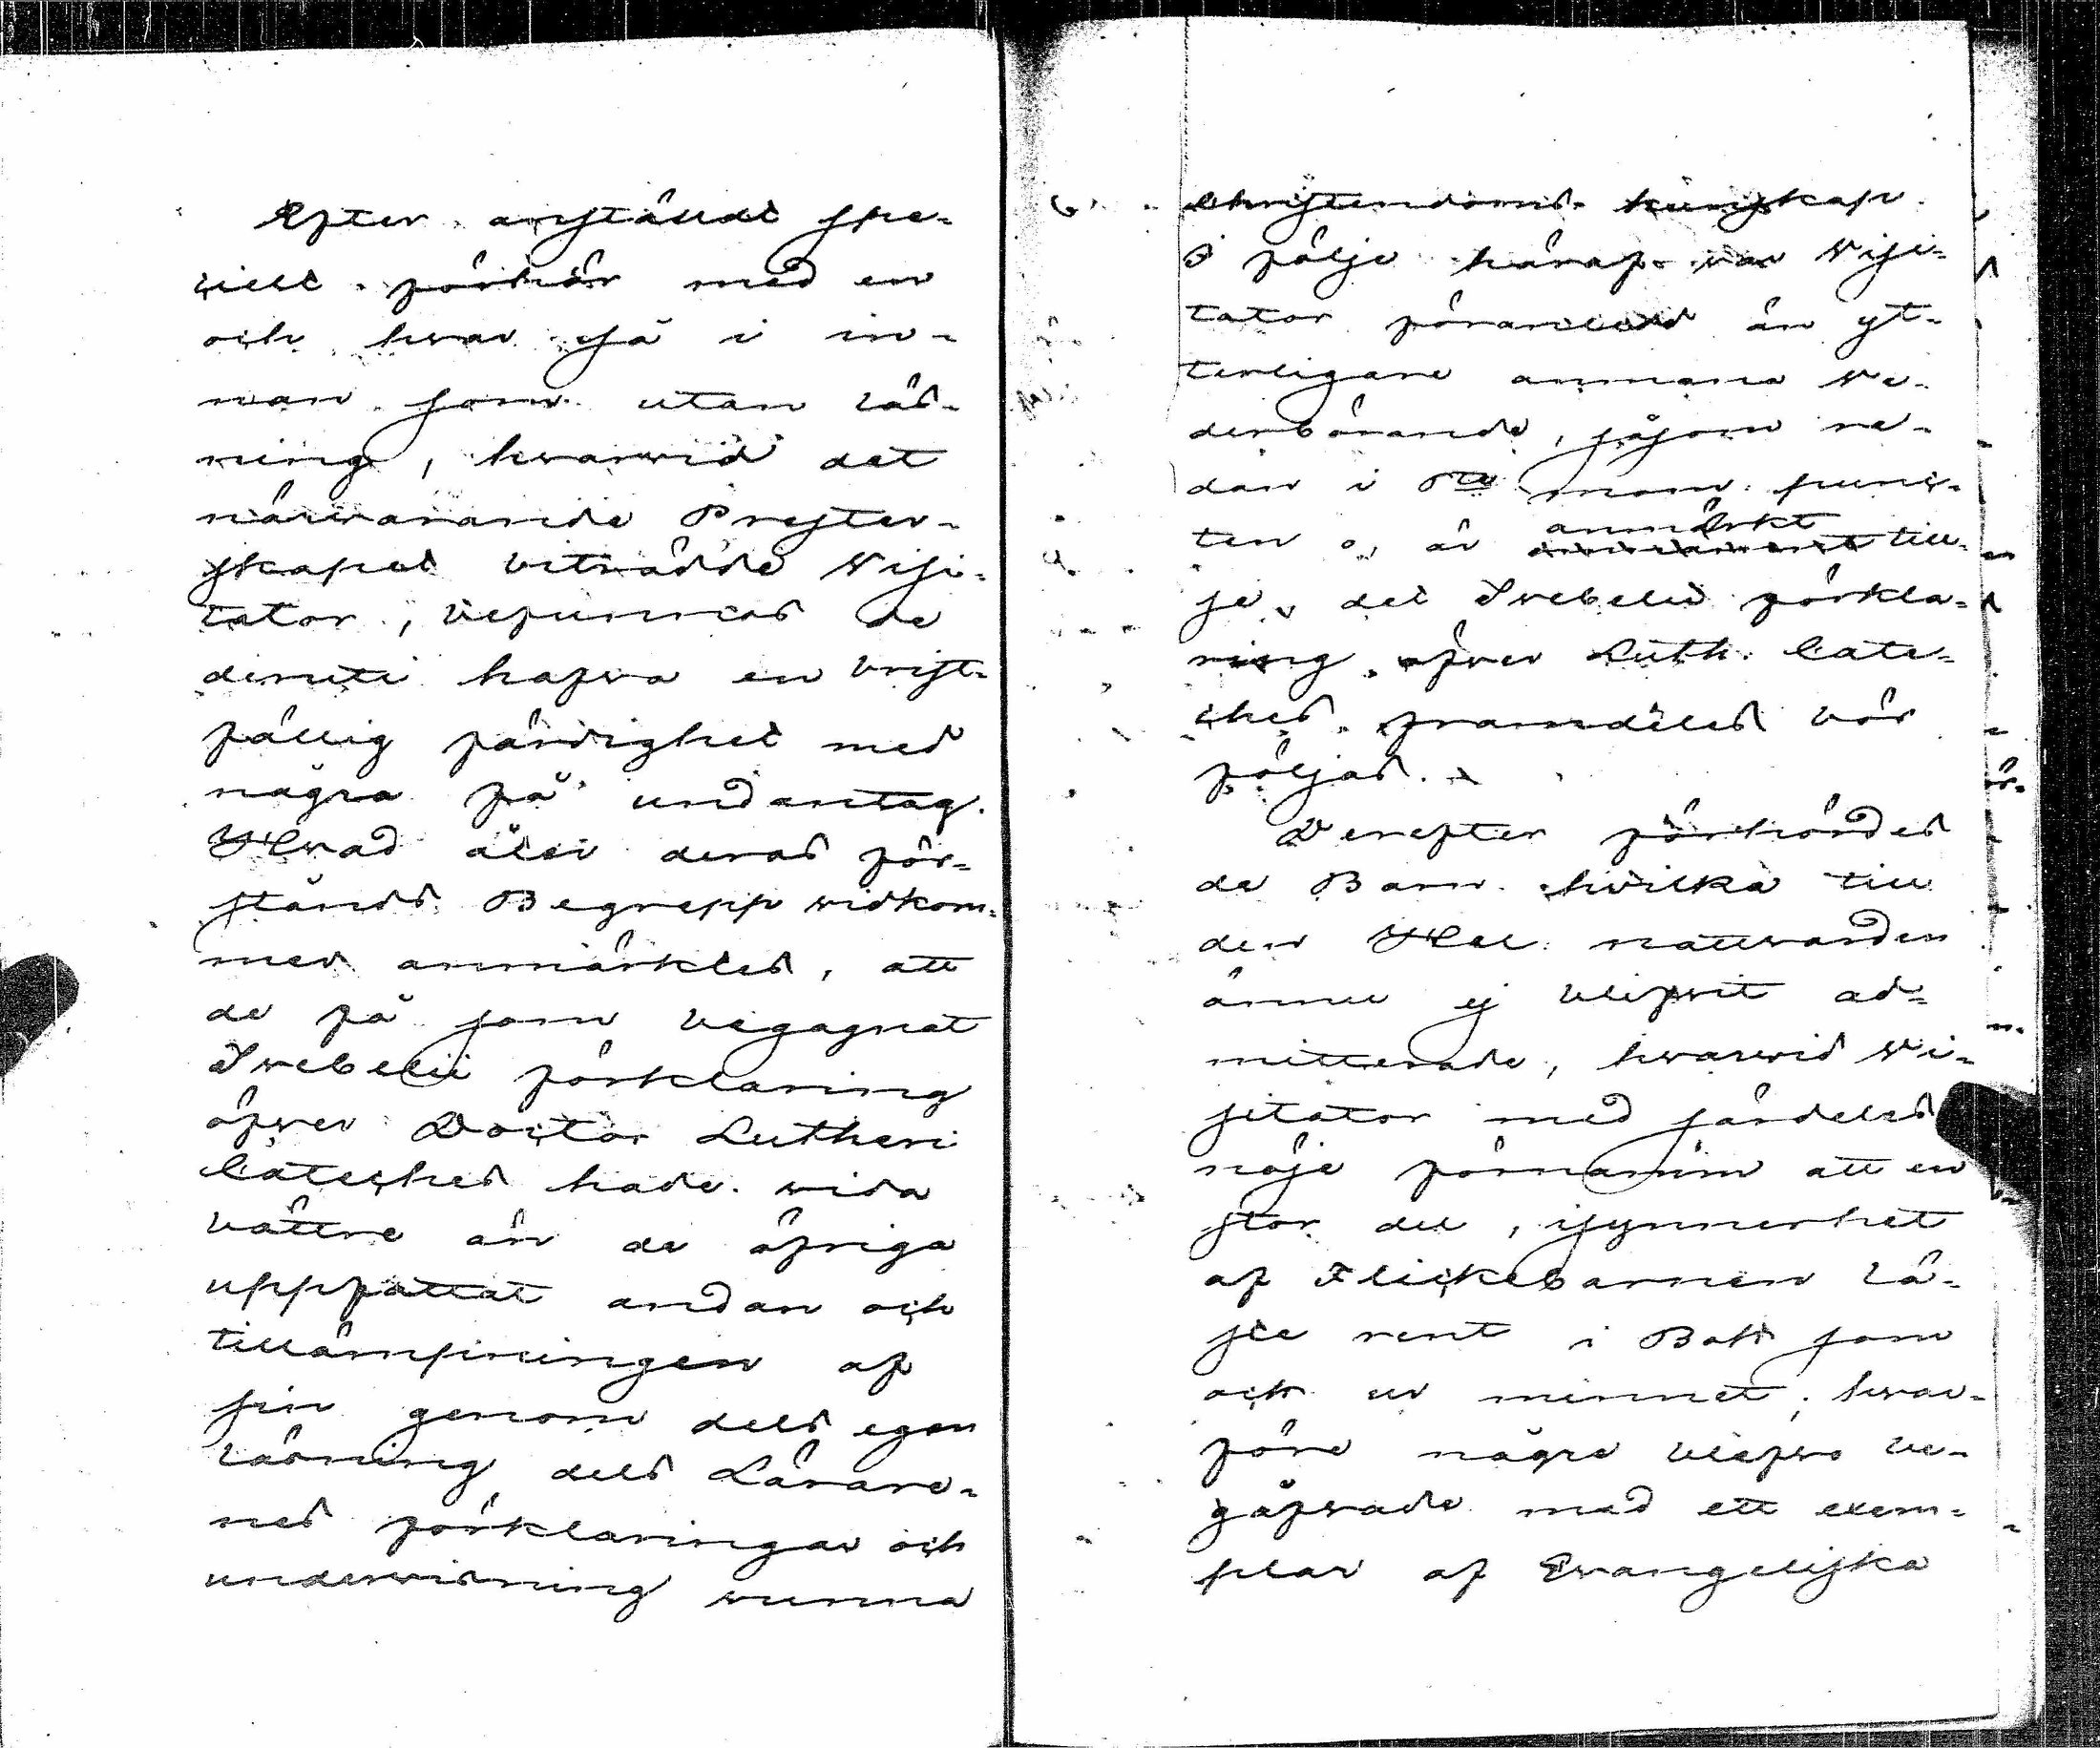 Efter anstäldt spe-
cielt förhör med en
och hwar så i in-
nan som utan läs-
ning, hwarwid det
närwarande Prester-
skapet biträdde Wisi-
tator, befunnos de
deruti hafwa en brist-
fällig färdighet med
några få undantag.
Hwad åter deras för-
stånds Begrepp widkom-
mer anmärktes, att
de få som begagnat
Swebelii förklaring
öfwer Doctor Lutheri
Cateches hade wida
bättre än de öfriga
uppfattat andan och
tillämpningen af
sin genom dels egen
läsning dels Lärare-
nes förklaringar och
underwisning wunna
Christendoms kunskap.
I följe häraf war Wisi-
tator föranlåten än yt-
terligare anmana we-
derbörande, såsom re-
dan i mom: punc-
ten o, är anmärkt till-
se, det Swebelii förkla-
ring öfwer Luth: Cate-
ches framdeles bör
följas.
Derefter förhördes
de Barn hwilka till
den Hel: nattwarden
ännu ej blifwit ad-
mitterade, hwarwid Wi-
sitator med särdeles
nöje förnamm att en
stor del, isynnerhet
af Flickebarnen lä-
ste rent i Bok som
ock ur minnet; hwar-
före några blefwo be-
gåfwade med ett exem-
plar af Evangeliska